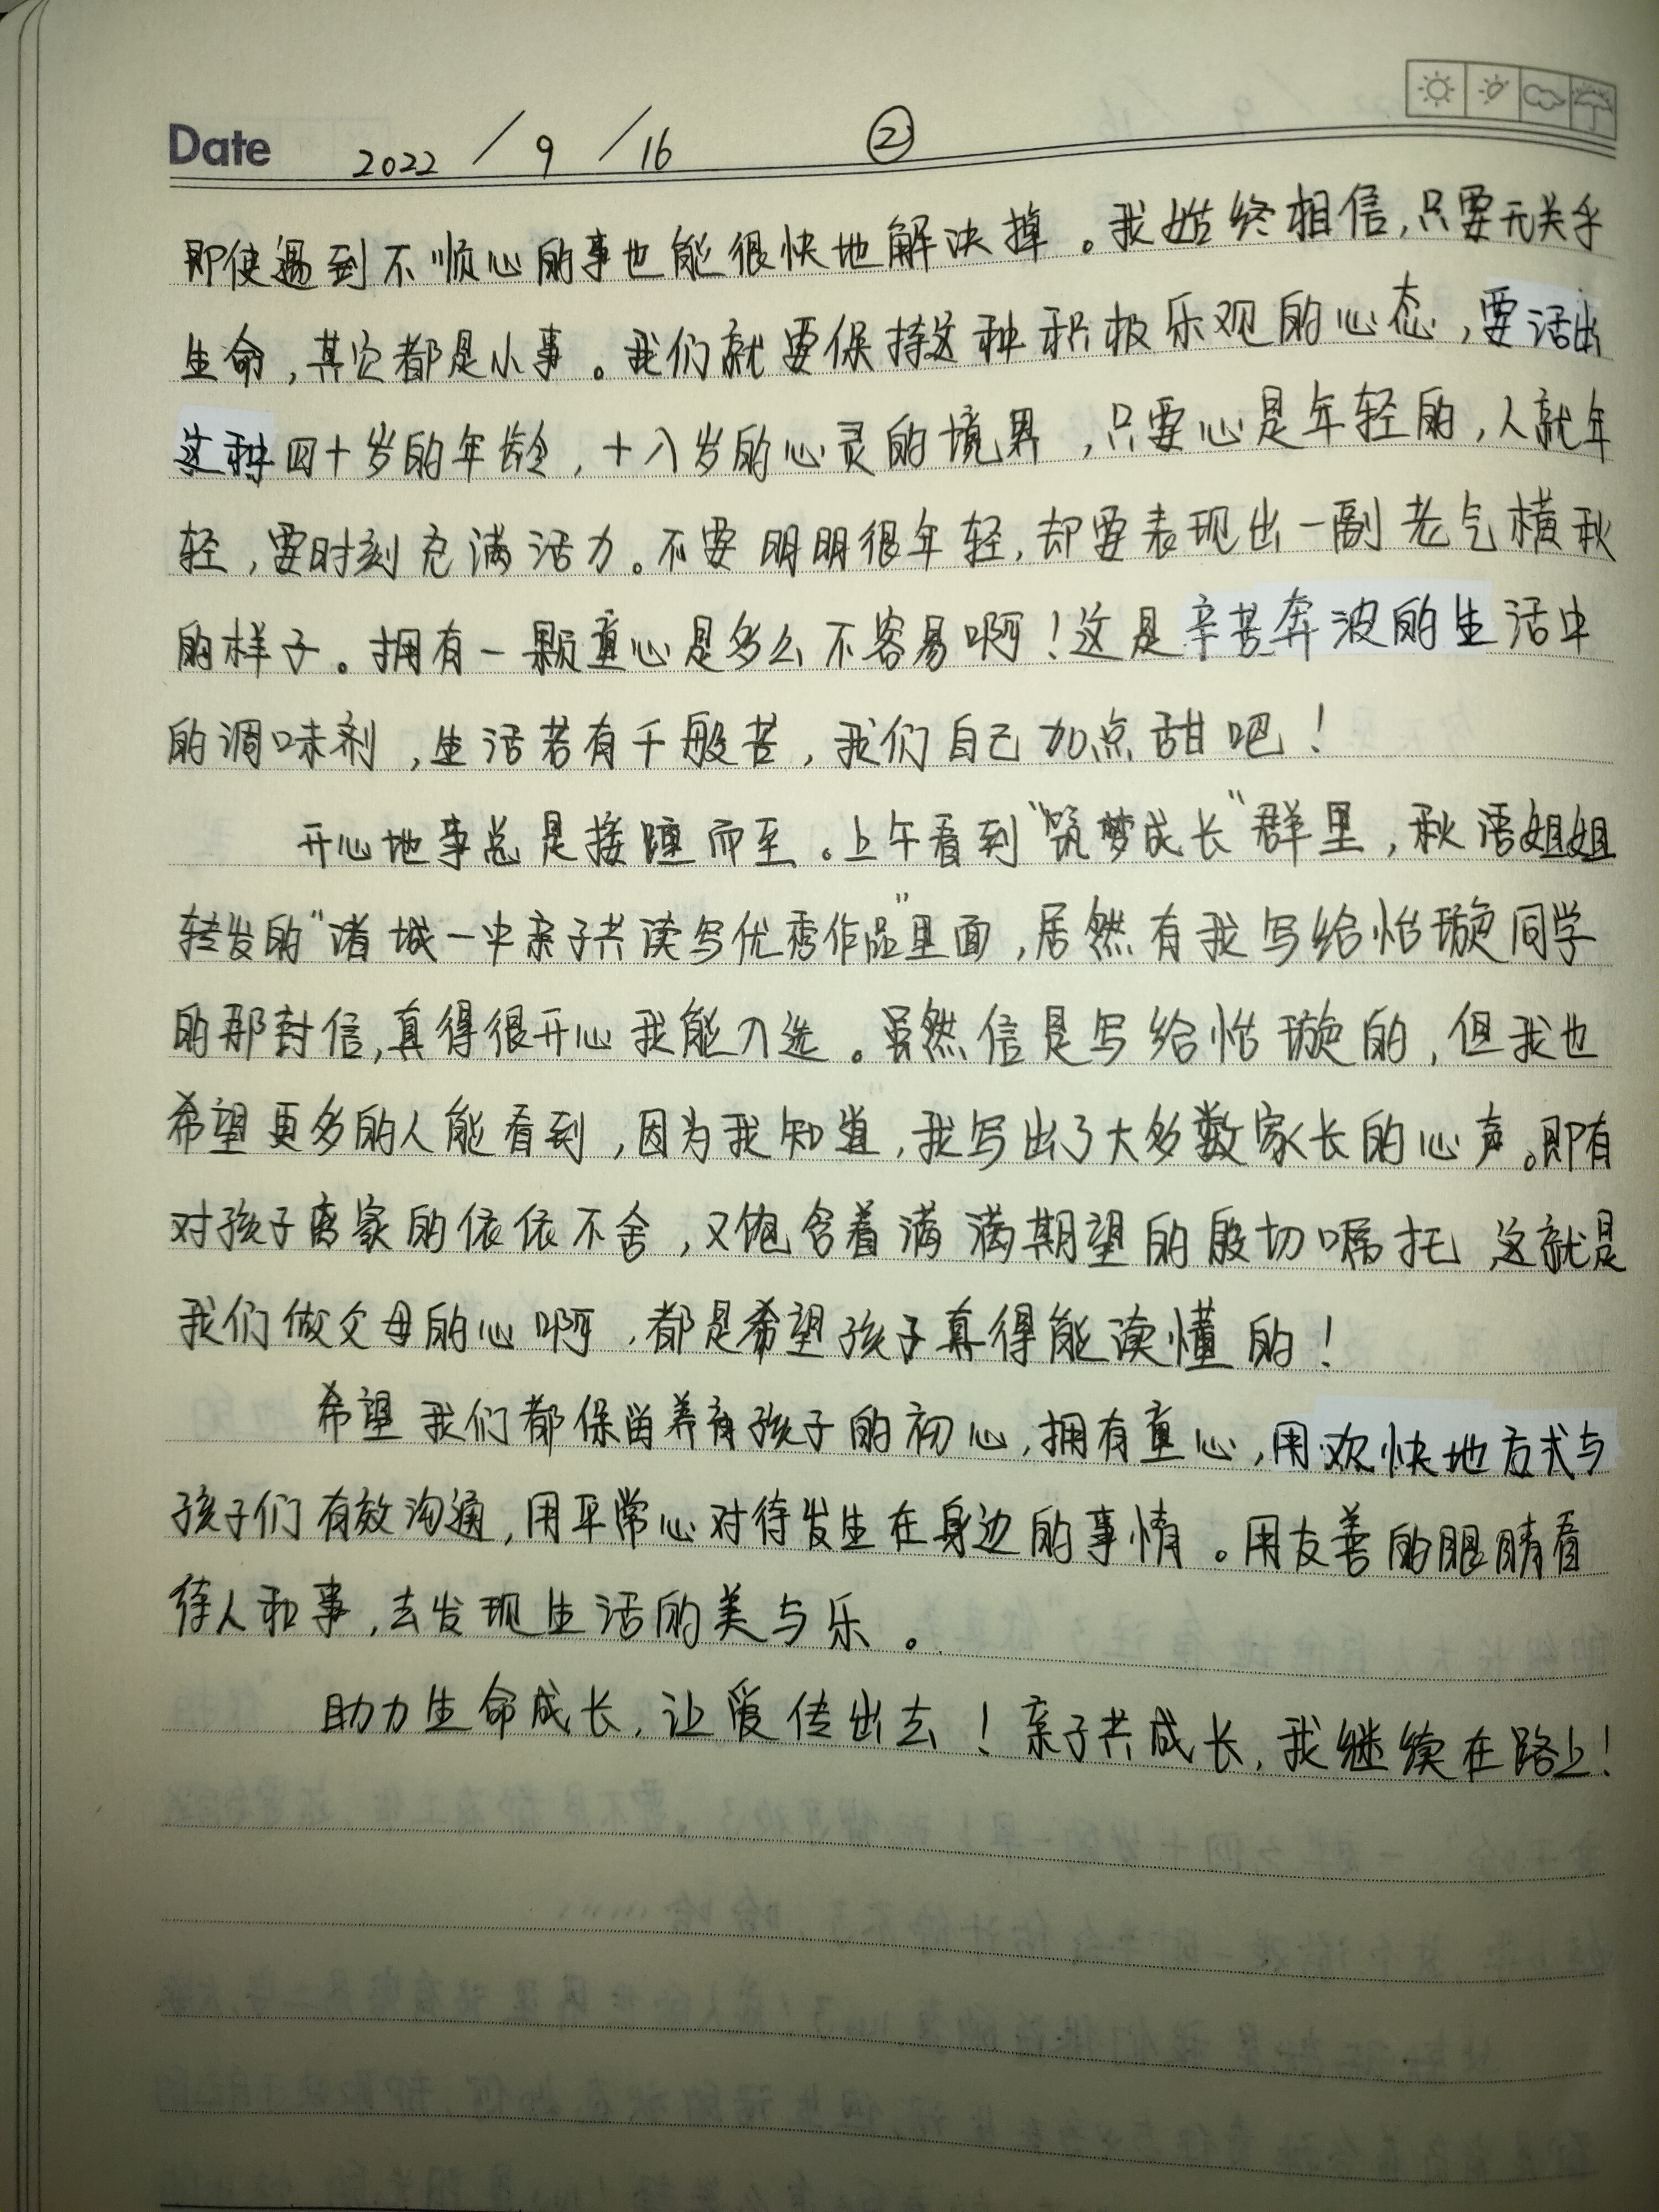 Date 2022 / 9 / 16 ②
即使遇到不顺心的事也能很快地解决掉。我始终相信,只要无关乎
生命,其它都是小事。我们就要保持这种积极乐观的心态,要活出
这种四十岁的年龄,十八岁的心灵的境界,只要心是年轻的,人就年
轻,要时刻充满活力。不要明明很年轻,却要表现出一副老气横秋
的样子。拥有一颗童心是多么不容易啊!这是辛苦奔波的生活中
的调味剂,生活若有千般苦,我们自己加点甜吧!
开心地事总是接踵而至。上午看到“筑梦成长“群里,秋语姐姐
转发的“诸城一中亲子共读写优秀作品”里面,居然有我写给怡璇同学
的那封信,真得很开心我能入选。虽然信是写给怡璇的,但我也
希望更多的人能看到,因为我知道,我写出了大多数家长的心声。即有
对孩子离家的依依不舍,又饱含着满满期望的殷切嘱托,这就是
我们做父母的心啊,都是希望孩子真得能读懂的!
希望我们都保留养育孩子的初心,拥有童心,用欢快地方式与
孩子们有效沟通,用平常心对待发生在身边的事情。用友善的眼睛看
待人和事,去发现生活的美与乐。
助力生命成长,让爱传出去!亲子共成长,我继续在路上!